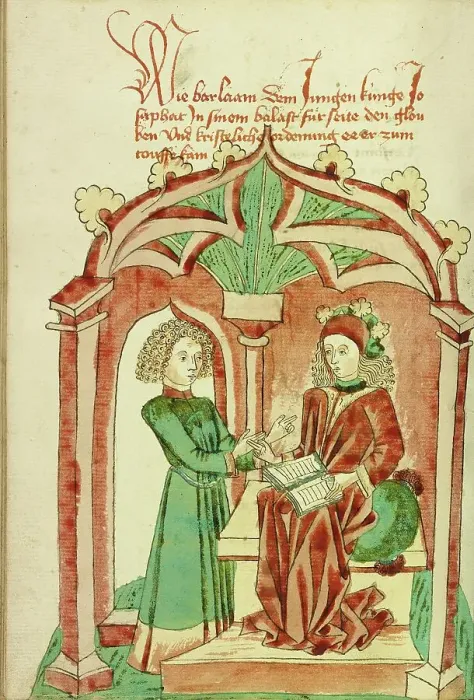 Wie barlaam Dem Jungen kunge Jo
saphat Jn sinem balast fúr seite den glou
ben Vnd kristeliche ordenung ee er zum
touffe kam